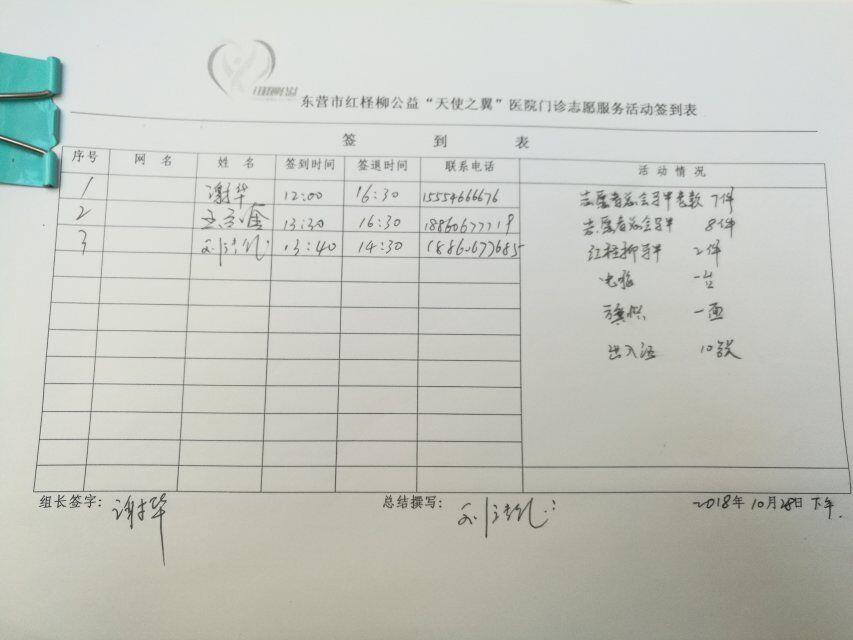 东营市红柽柳公益“天使之翼”医院门诊志愿服务活动签到表
签 到 表
序号 网 名 姓 名 签到时间 签退时间 联系电话 活 动 情 况
1 谢华 12:00 16:30 15554666676 志愿者总会马甲 7件
2 13:30 16:30 18860677719 志愿者总会马甲 8件
3 13:40 14:30 18860677685 红柽柳马甲 2件
电脑 一台
旗帜 一面
出入证 10张
组长签字: 谢华 总结撰写: 2018年10月28日下午.